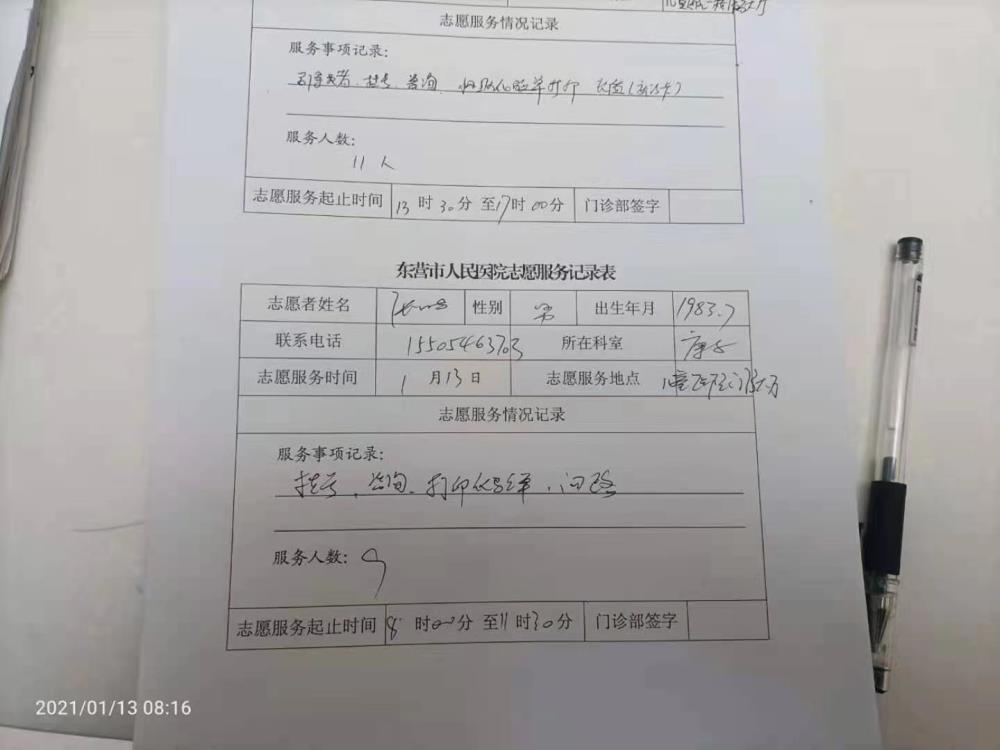 志愿服务情况记录
服务事项记录:
挂号、咨询、化验单打印
服务人数:
11人
志愿服务起止时间 13时30分至17时00分 门诊部签字
东营市人民医院志愿服务记录表
志愿者姓名 性别 男 出生年月 1983.7
联系电话 15505463703 所在科室
志愿服务时间 1月13日 志愿服务地点
志愿服务情况记录
服务事项记录:
挂号、咨询、打印化验单、问路
服务人数: 9
志愿服务起止时间 8时00分至11时30分 门诊部签字
2021/01/13 08:16